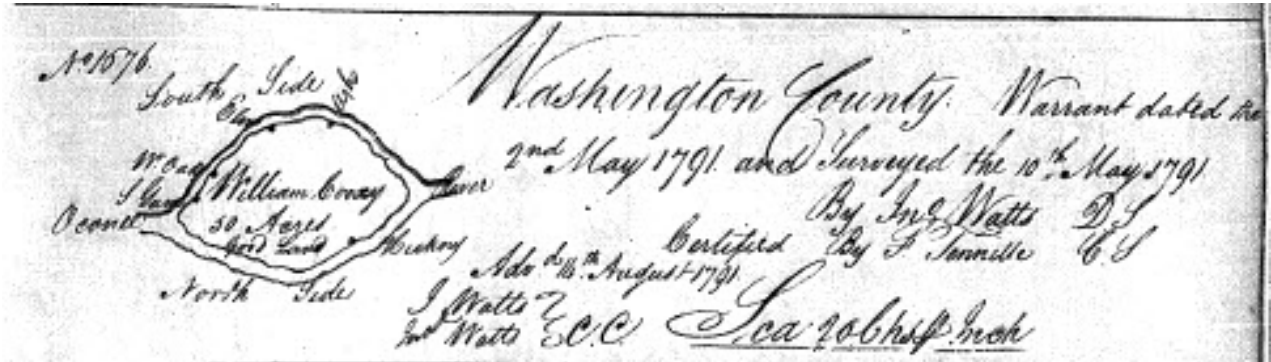 No 1676.
South Side
Elm
Ash
W. Oak
S Gum
Oconee
River
William Coxay
50 Acres
Good Land
Hickory
North Side
Washington County. Warrant dated the
2nd May 1791. and Surveyed the 10th May 1791.
By Jno Watts D.S
Certified By F Tennille C.S
Advd 16th August 1791.
J Watts
Jno Watts } C.C
Sca 20 Chs pr Inch